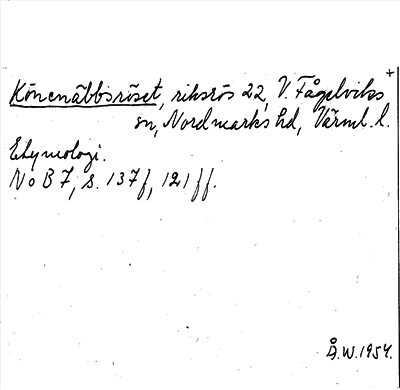 +
Könenäbbsröset, riksrös 22, V. Fågelviks
sn, Nordmarks hd, Värml. l.
Etymologi.
NoB 7, s. 137f, 121ff.
Å.W. 1954.